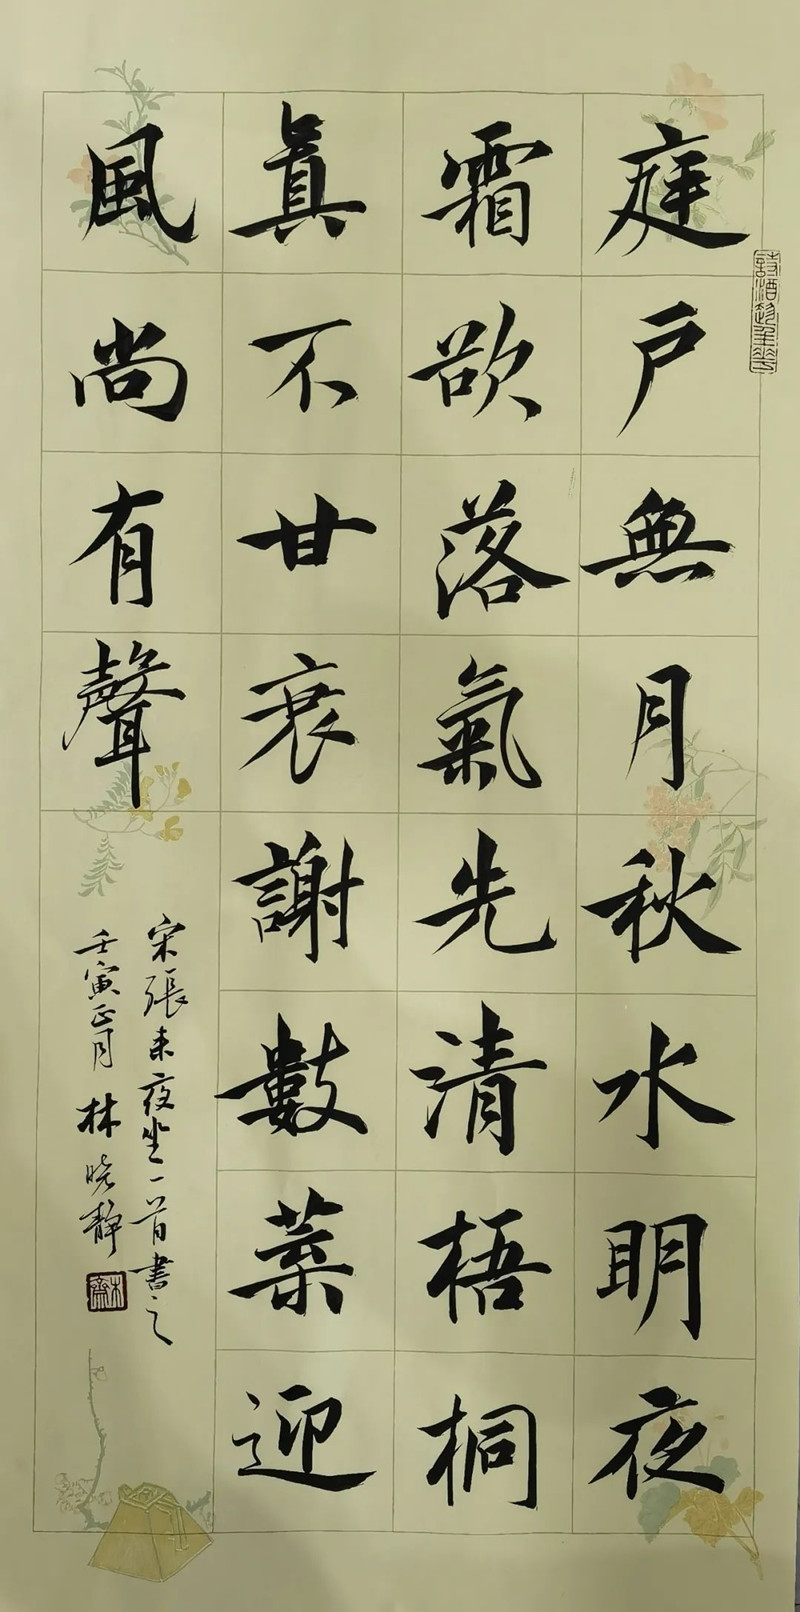 庭戶無月秋水明夜
霜欲落氣先清梧桐
眞不甘衰謝數葉迎
風尚有聲
宋張耒夜坐一首書之
壬寅正月林曉靜